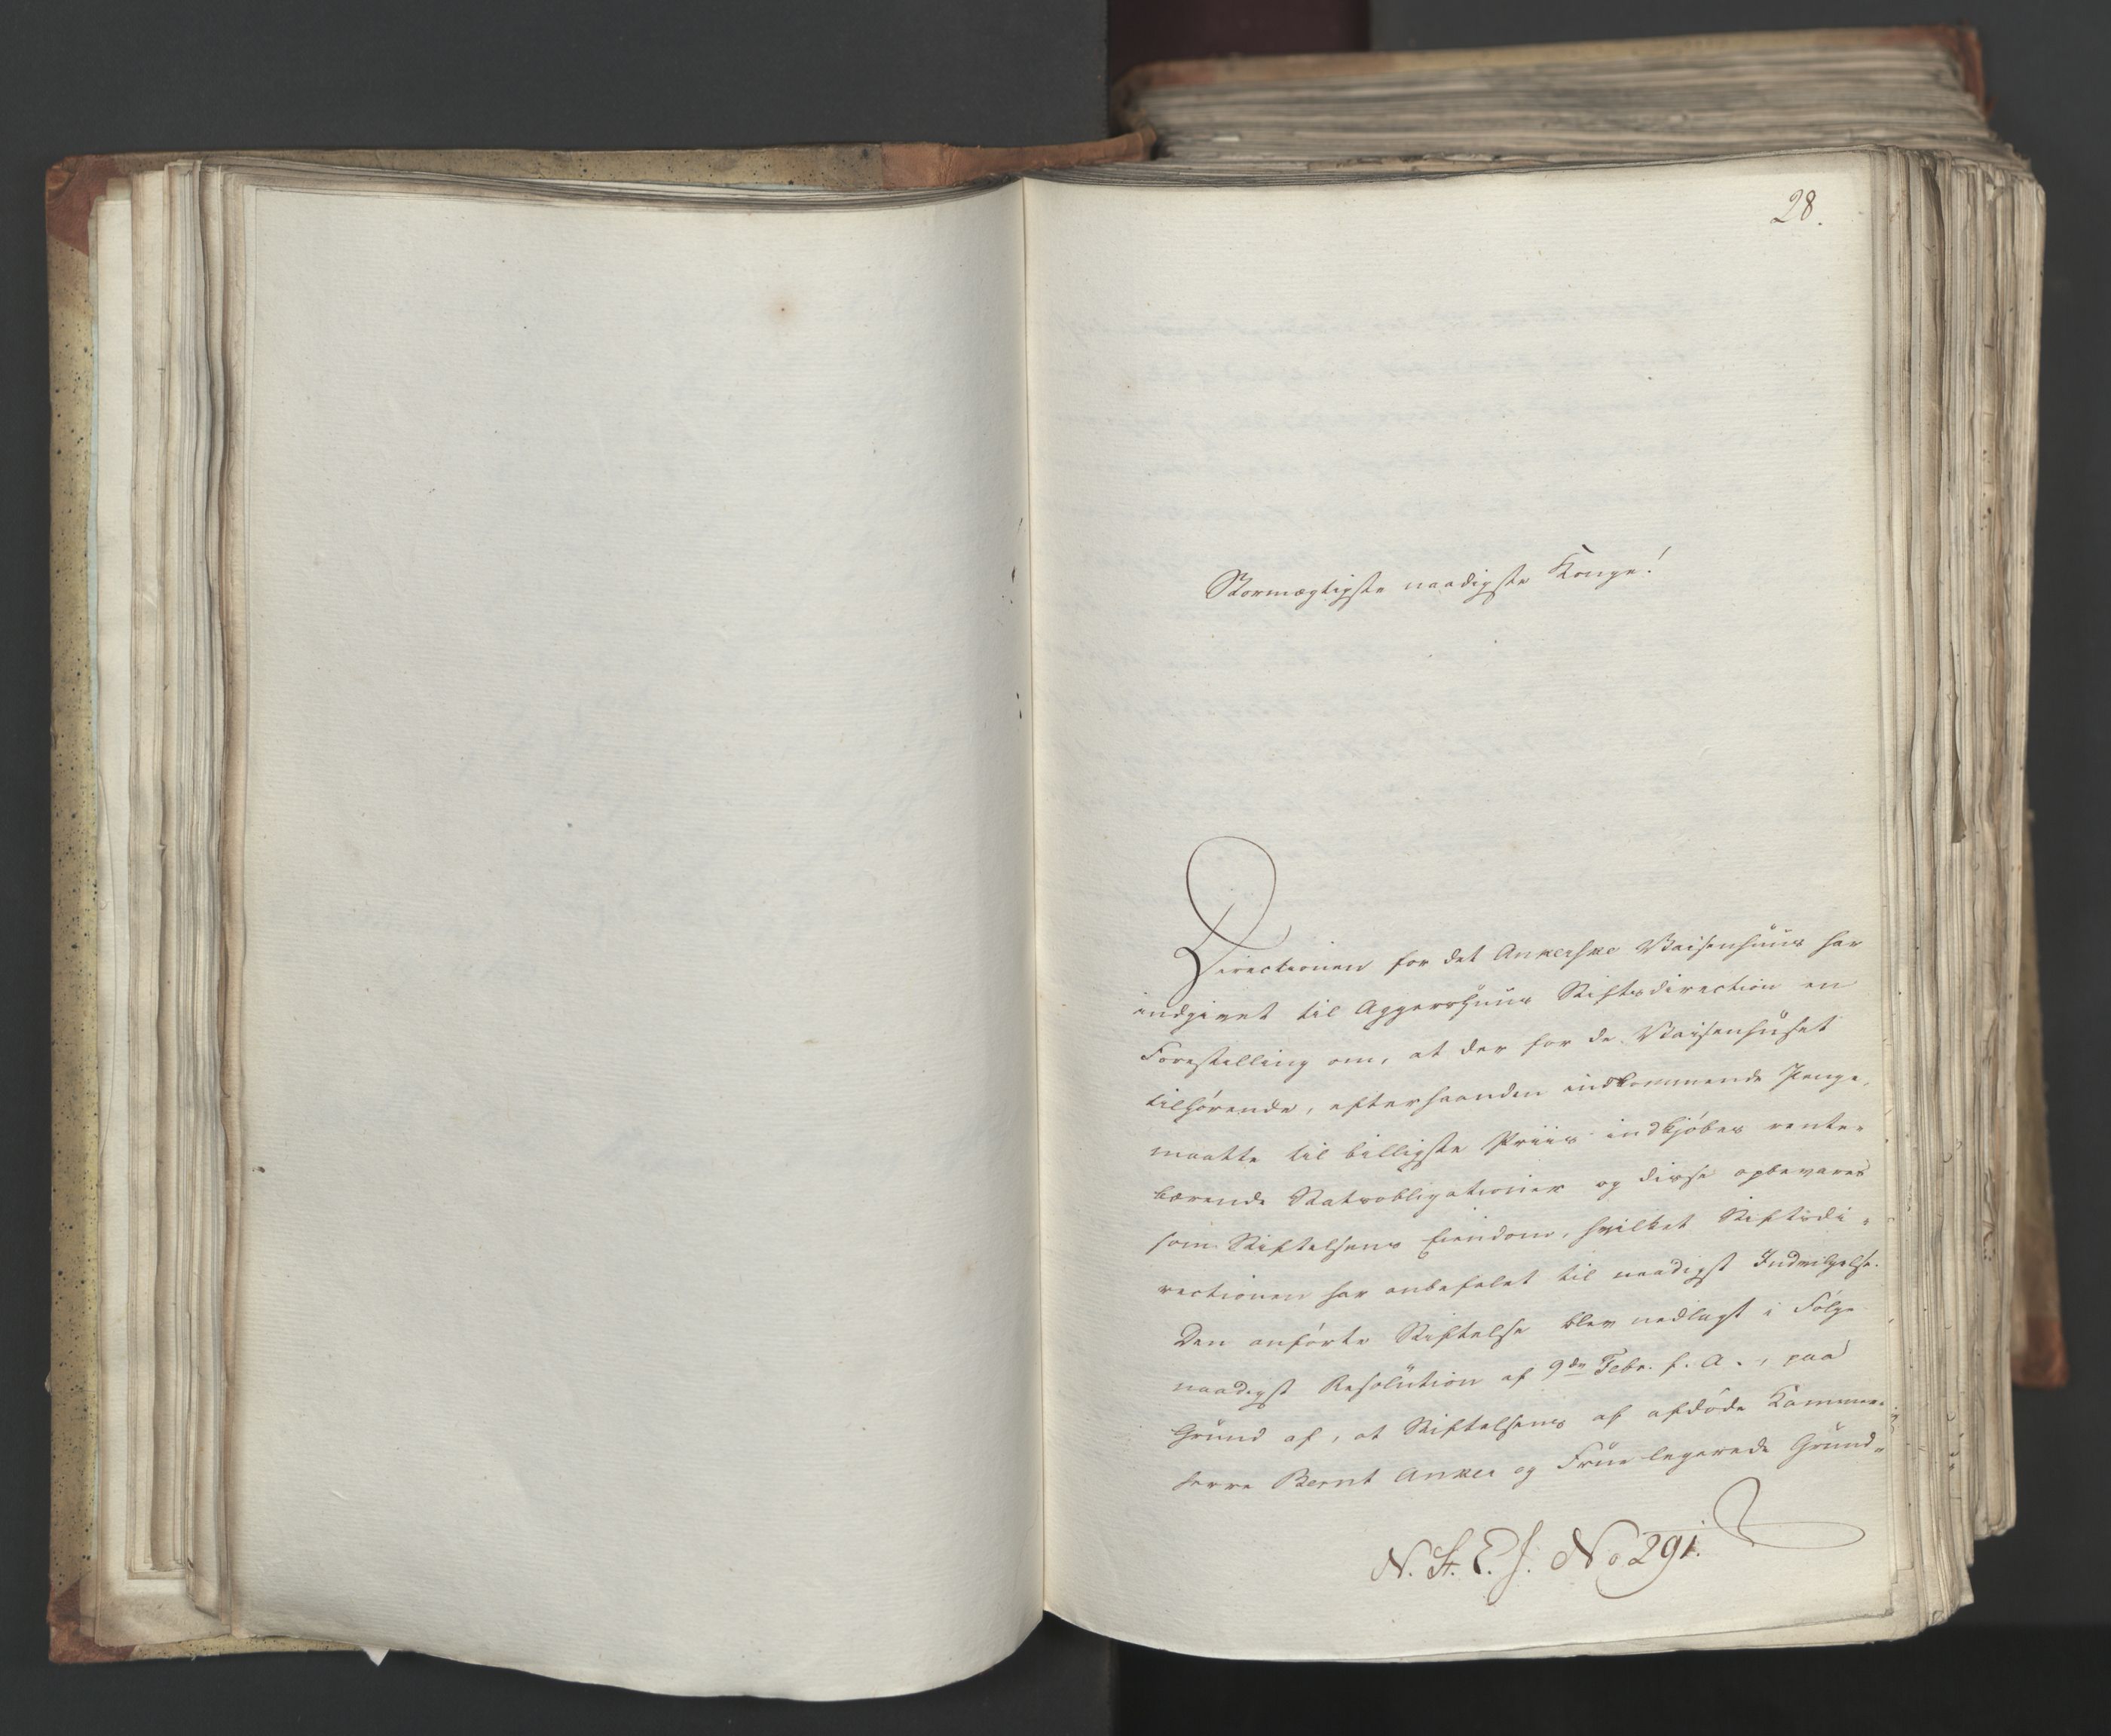 28.
Stormægtigste naadigste Konge!
Directionen for det Ankerske Vaisenhuus har
indgivet til Aggershuus Stiftsdirection en
Forestilling om, at der for de Vaisenhuset
tilhørende, efterhaanden indkommende Penge,
maatte til billigste Priis indkjøbes rente-
bærende Statsobligationer og disse opbevares
som Stiftelsens Eiendom, hvilket Stiftsdi-
rectionen har anbefalet til naadigst Indvilgelse.
Den anførte Stiftelse blev nedlagt i Følge
naadigst Resolution af 9de Febr. f. A., paa
Grund af, at Stiftelsens af afdøde Kammer-
herre Bernt Anker og Frue legerede Grund-
N. St. E. J. No 291.